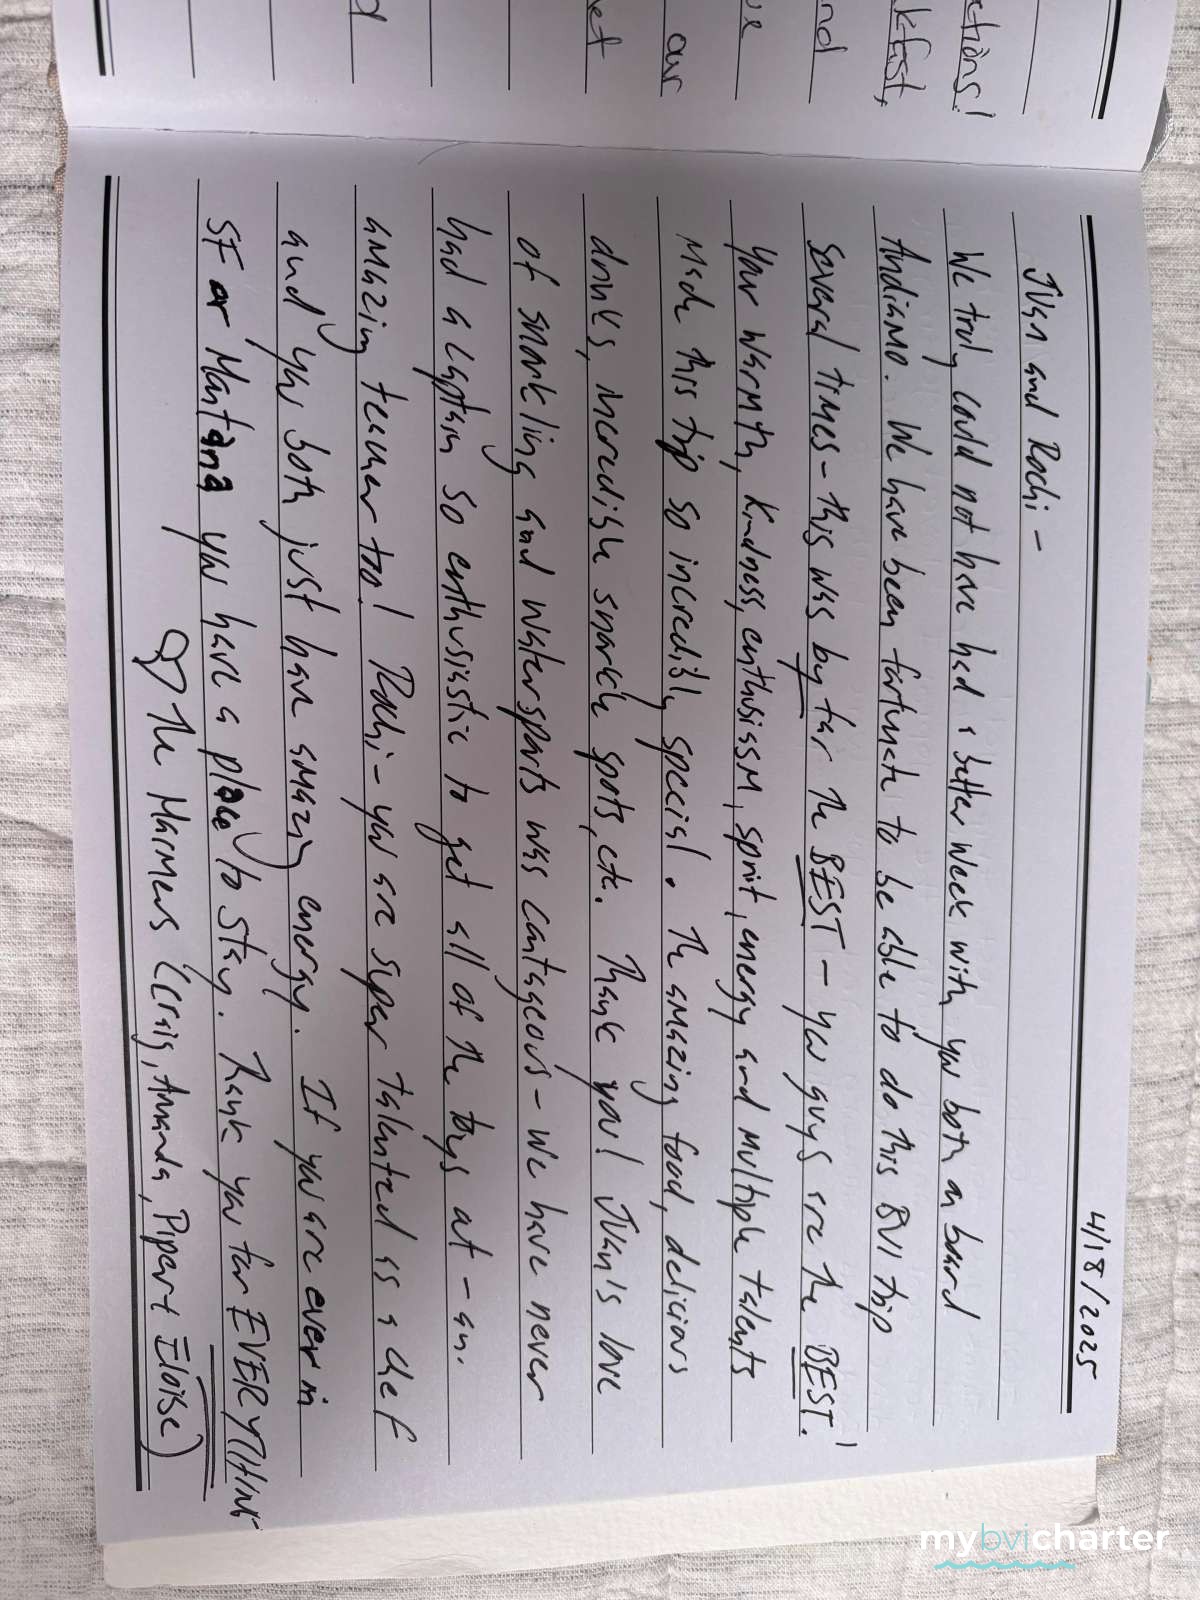 ctions!
kfast,
and
ue
our
et
d
4/18/2025
Juan and Rochi -
We truly could not have had a better week with you both on board
Andiamo. We have been fortunate to be able to do this BVI trip
several times - this was by far the BEST - you guys are the BEST!
Your warmth, kindness, enthusiasm, spirit, energy and multiple talents
made this trip so incredibly special. The amazing food, delicious
drinks, incredible snorkle spots, etc. Thank you! Juan's love
of snorkling and watersports was contageous - we have never
had a captain so enthusiastic to get all of the toys out - an
amazing teacher too! Rochi - you are super talented as a chef
and you both just have amazing energy. If you are ever in
SF or Montana you have a place to stay. Thank you for EVERYTHING
♡ The Marmers (Craig, Amanda, Piper + Eloise)
mybvicharter